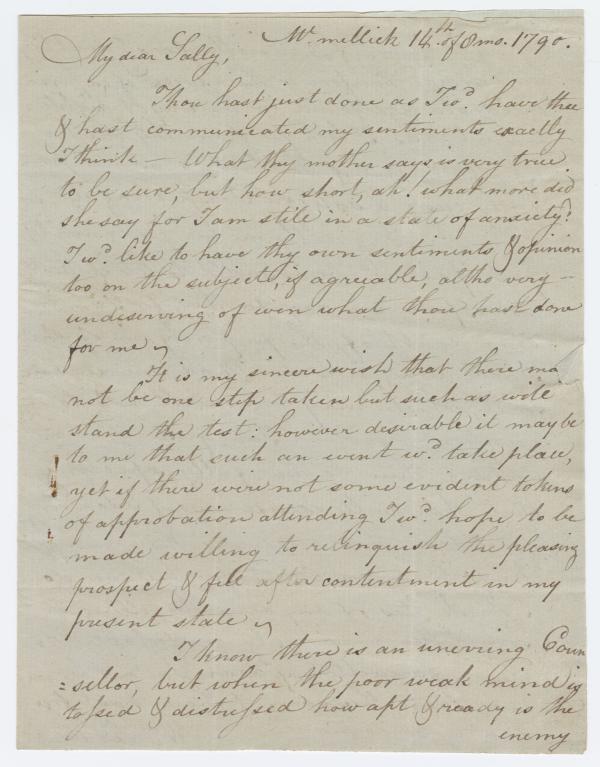 Mt. mellick 14th. of 8 mo. 1790.
My dear Sally,
Thou hast just done as I wd. have thee
& hast communicated my sentiments exactly
I think — What thy mother says is very true
to be sure, but how short, ah! what more did
she say for I am stile in a state of anxiety?
I wd. like to have thy own sentiments & opinion
too on the subject, if agreable, altho very –
undeserving of even what thou hast done
for me ~
It is my sincere wish that there ma
not be one step taken but such as will
stand the test: however desirable it may be
to me that such an event wd. take place,
yet if there were not some evident tokens
of approbation attending I wd. hope to be
made willing to relinquish the pleasing
prospect & feel after contentment in my
present state ~
I know there is an unerring Coun
=sellor, but when the poor weak mind is
tossed & distressed how apt & ready is the
enemy